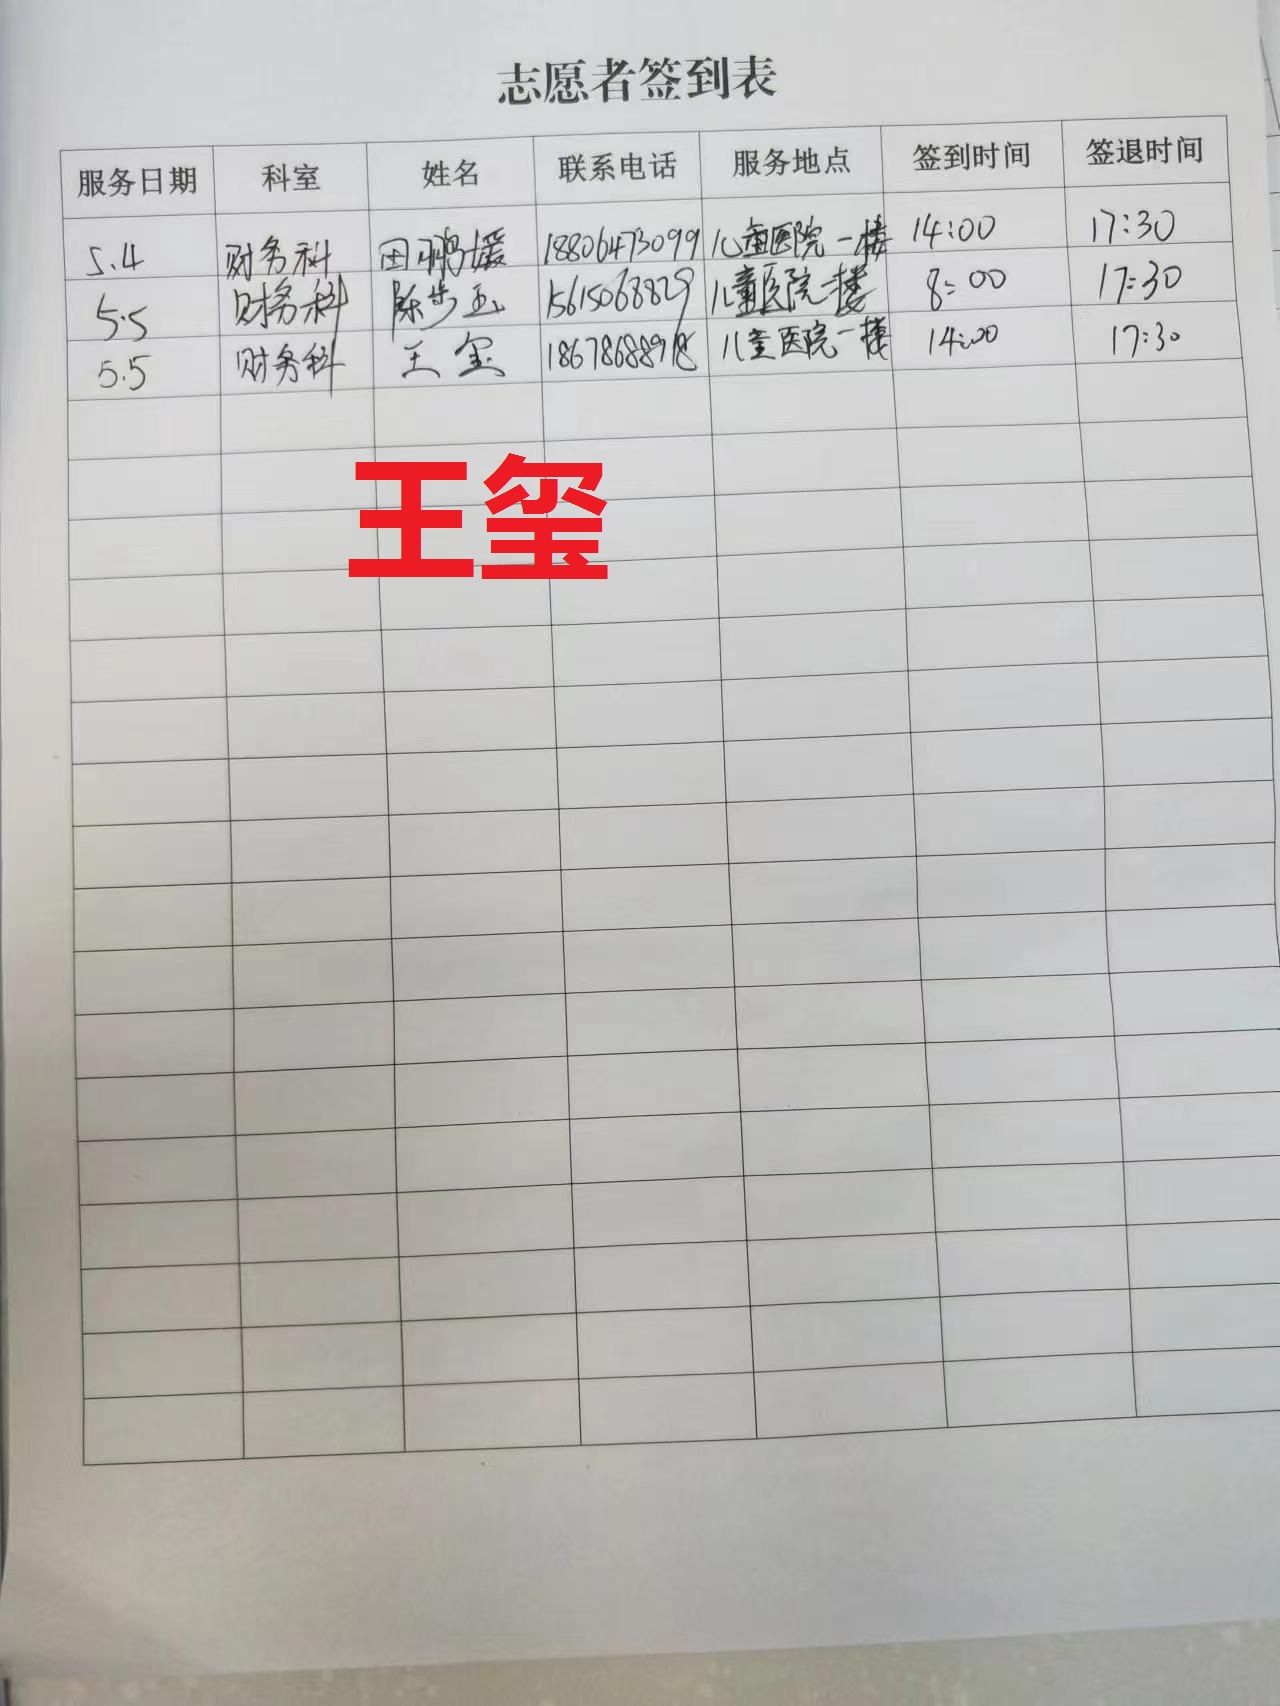 志愿者签到表
服务日期 科室 姓名 联系电话 服务地点 签到时间 签退时间
5.4 财务科 田鹏媛 18806473099 儿童医院一楼 14:00 17:30
5.5 财务科 陈步玉 15615068829 儿童医院一楼 8:00 17:30
5.5 财务科 王玺 儿童医院一楼 14:00 17:30
王玺